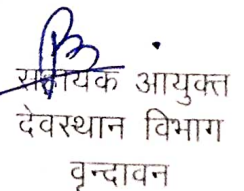 सहायक आयुक्त
देवस्थान विभाग
वृन्दावन